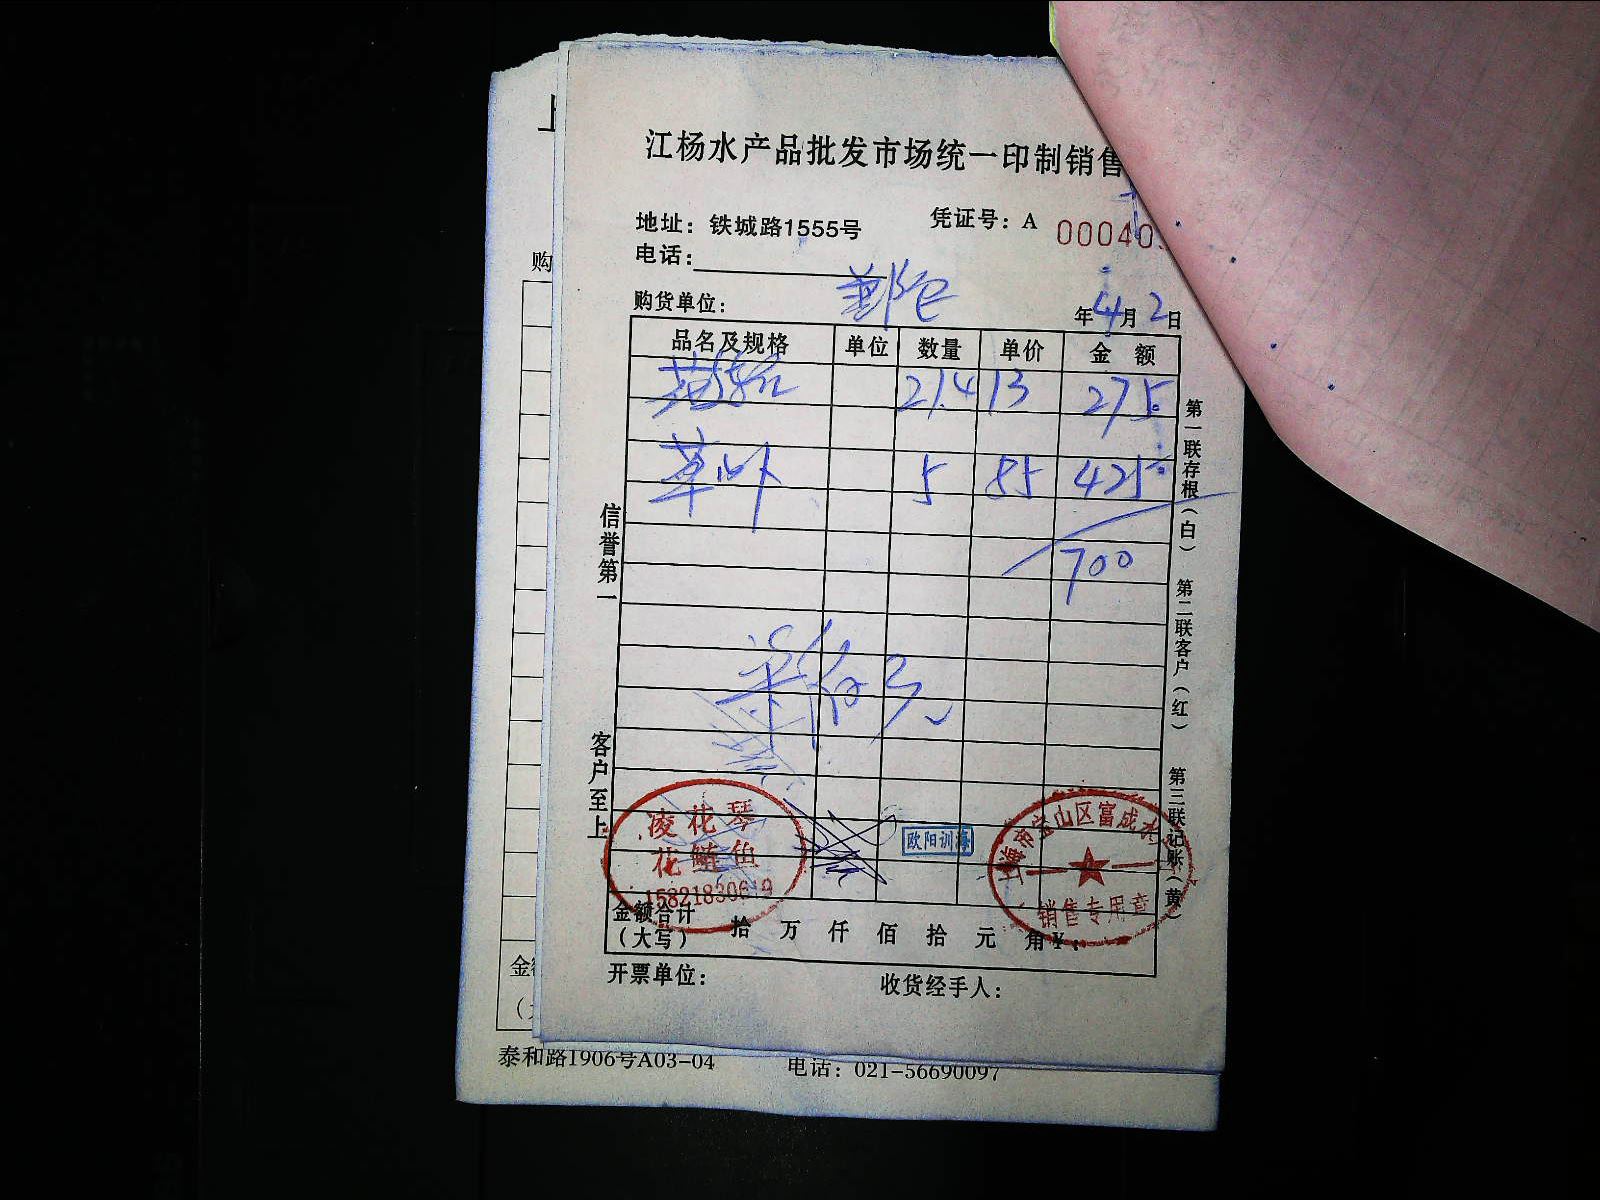 江杨水产品批发市场统一印制销售
地址：铁城路1555号
凭证号：A 00040
电话：
购货单位：
年4月2日
品名及规格 单位 数量 单价 金 额
21.4 13 275
5 85 425
700
信誉第一
客户至上
第一联存根（白） 第二联客户（红） 第三联记账（黄）
凌花琴
花鲢鱼
15821830619
欧阳训海
上海市宝山区富成水
销售专用章
金额合计
（大写） 拾 万 仟 佰 拾 元 角 ¥：
开票单位：
收货经手人：
购
金
泰和路1906号A03-04
电话：021-56690097